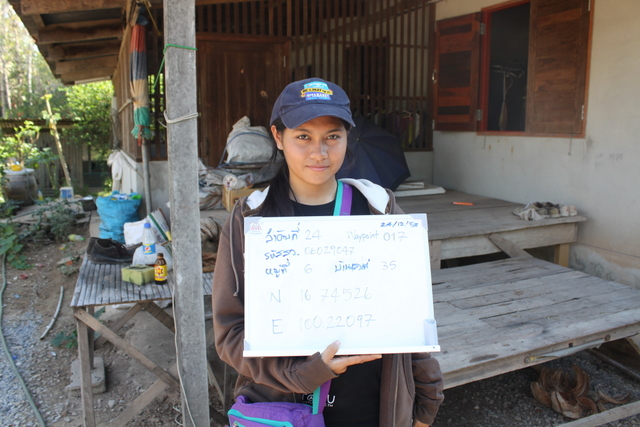 24/12/58
ลำดับที่ 24 Waypoint 017
รหัสสว. 06029047
หมู่ที่ 6 บ้านเลขที่ 35
N 16.74526
E 100.22097